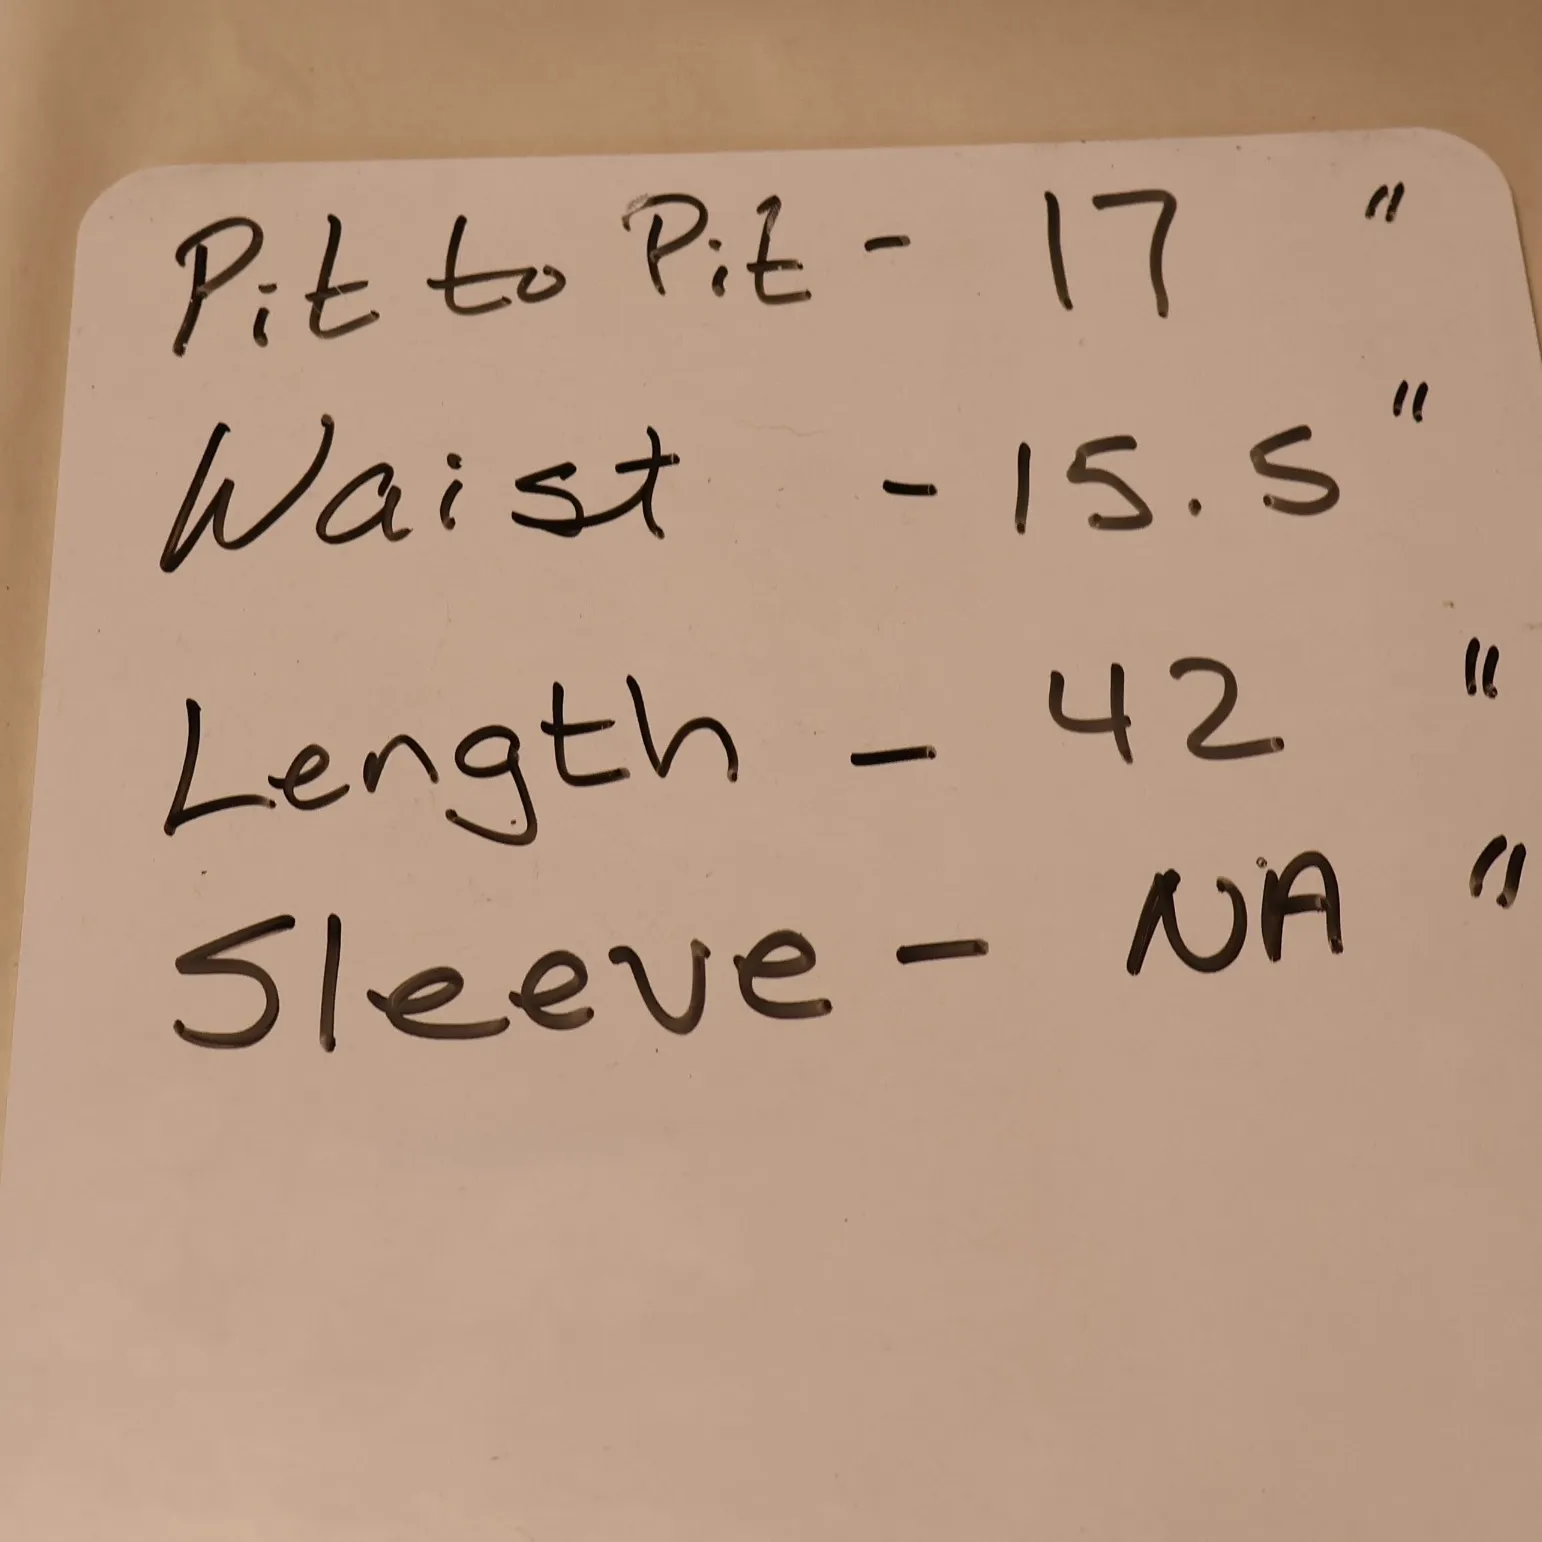 Pit to Pit - 17 "
Waist - 15.5 "
Length - 42 "
Sleeve - NA "